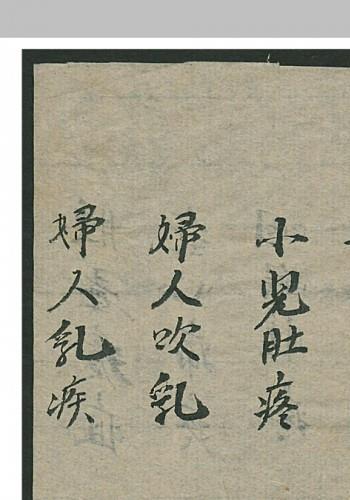 小児肚疼
婦人吹乳
婦人乳疾